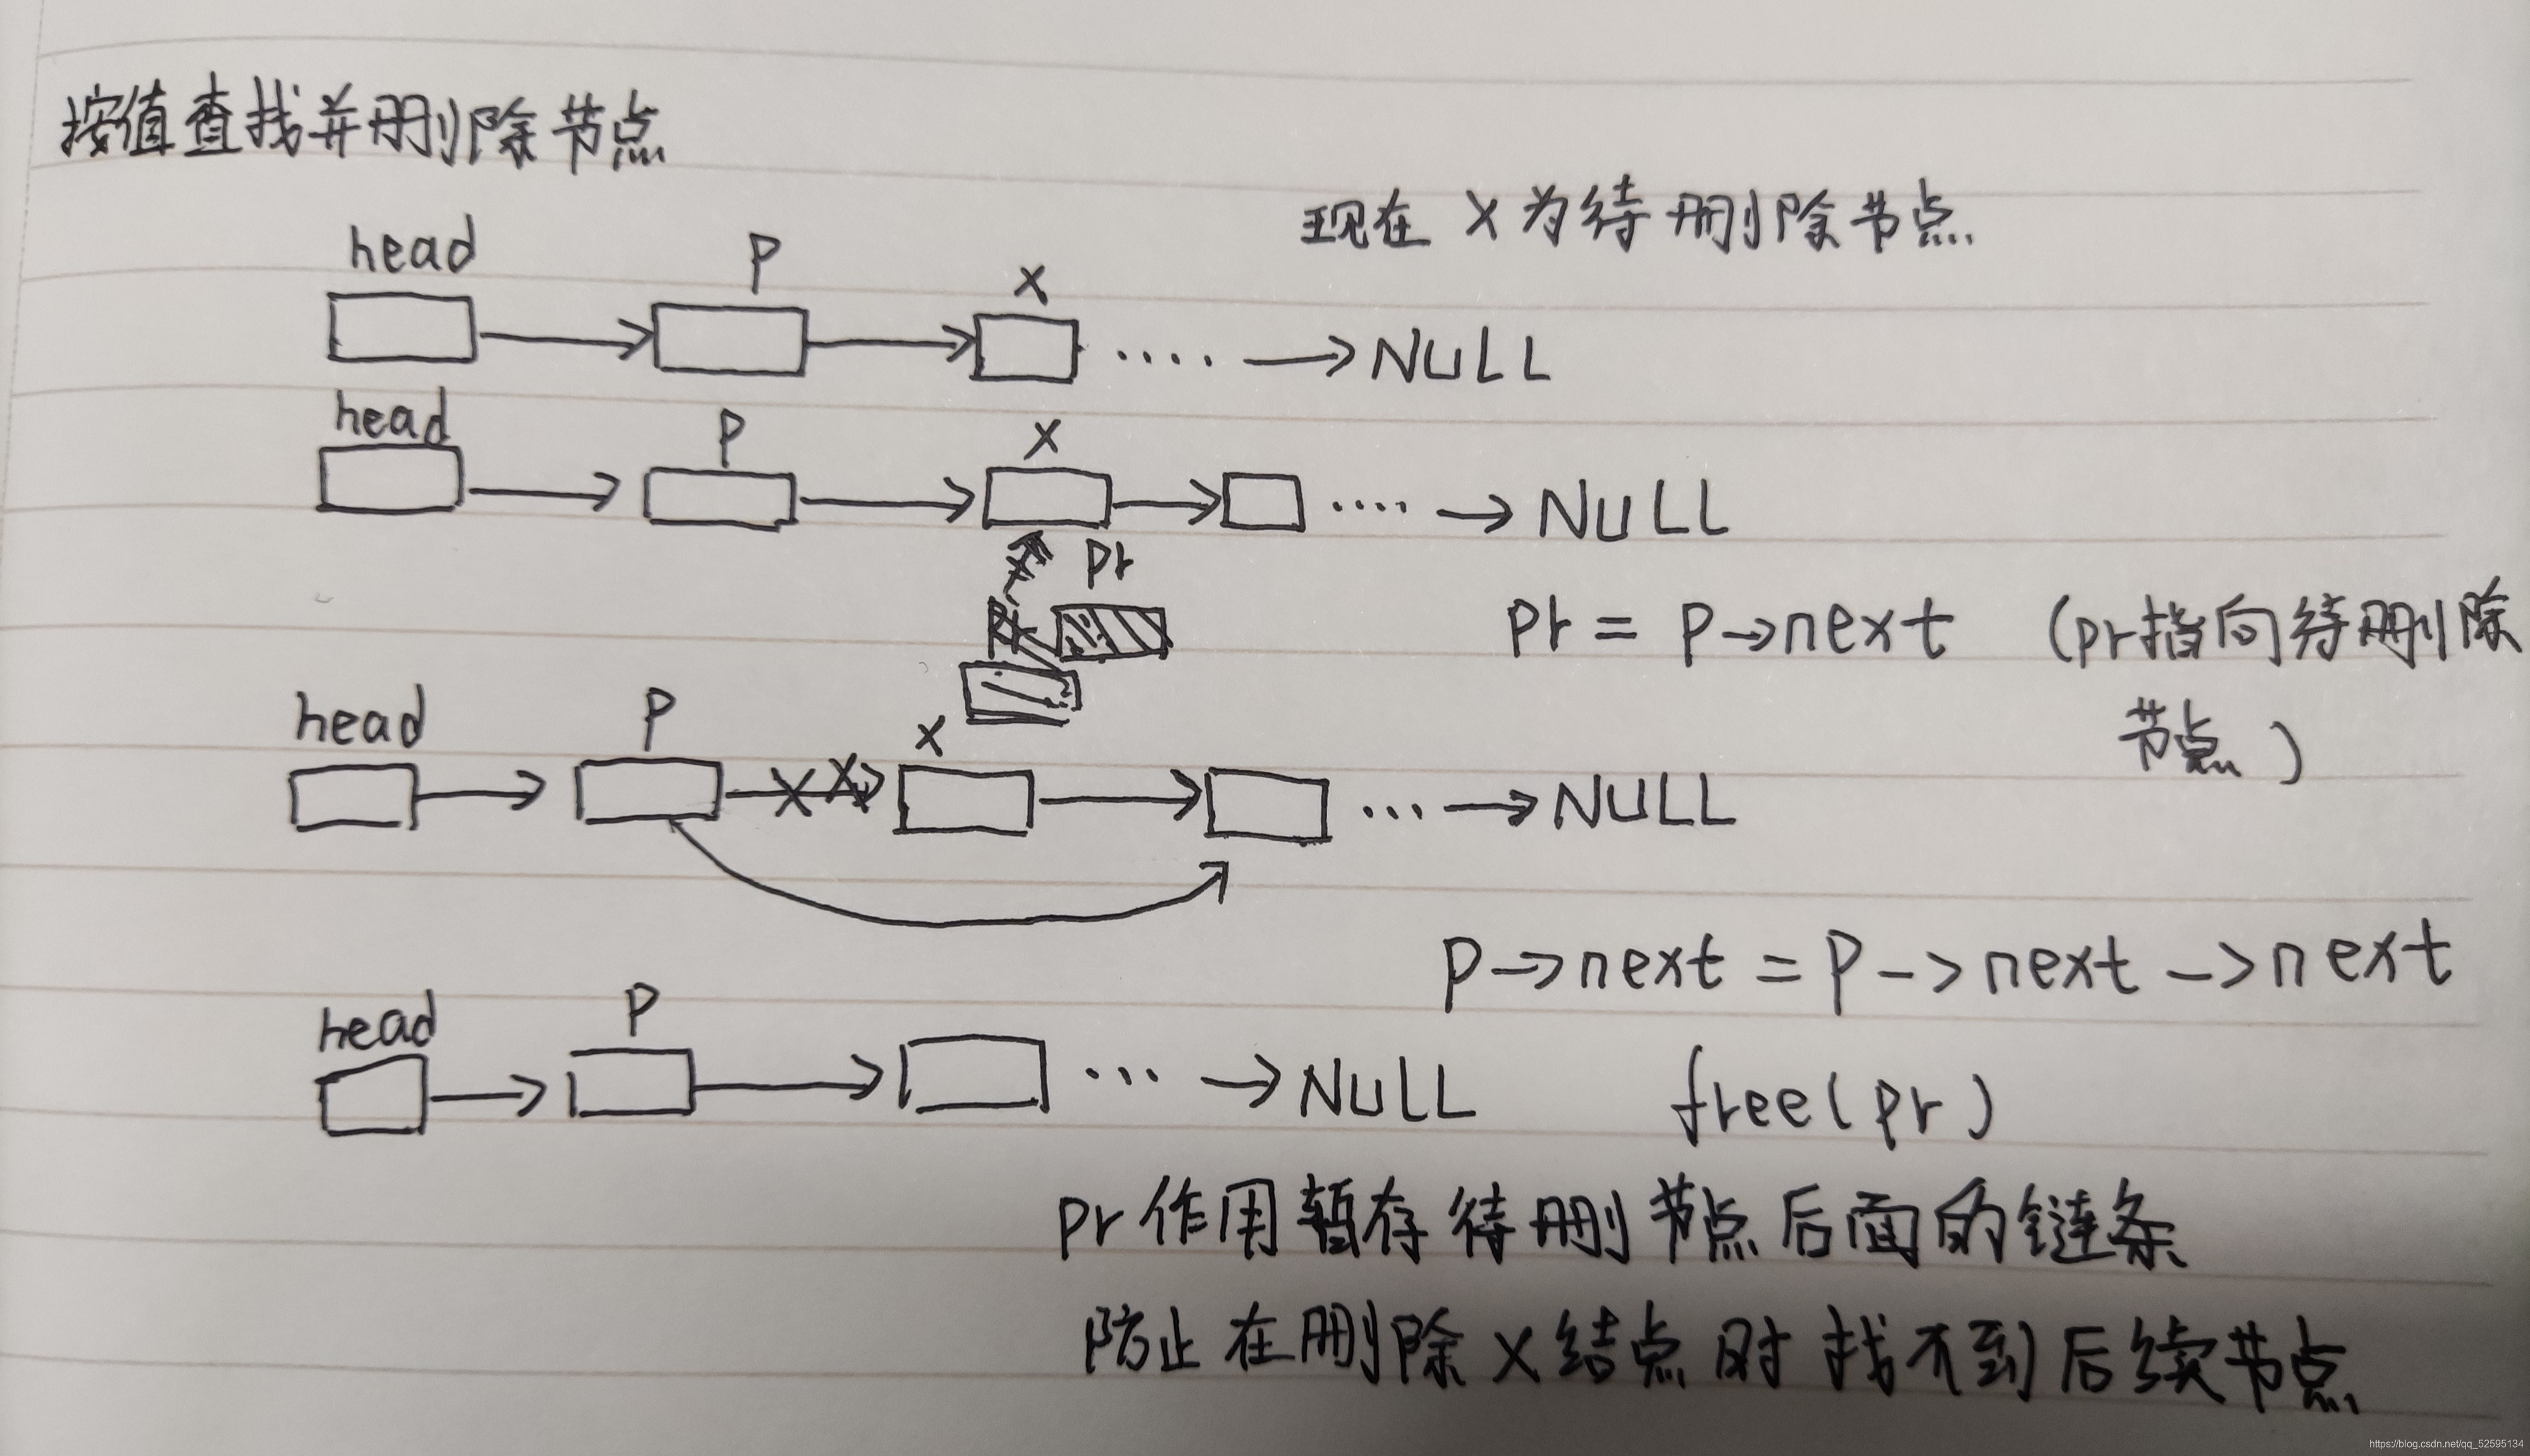 按值查找并删除节点
现在 X为待删除节点
head P X
NULL
head P X
NULL
pr
pr = P→next (pr指向待删除
节点)
head P X
NULL
P→next = P→next→next
head P
NULL
free(pr)
pr作用暂存待删节点后面的链条
防止在删除X结点时找不到后续节点
https://blog.csdn.net/qq_52595134